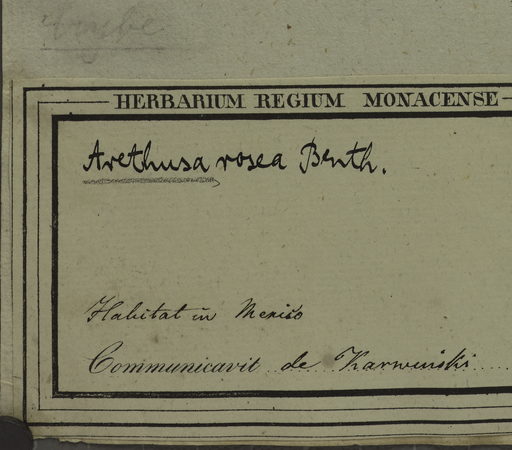 HERBARIUM REGIUM MONACENSE
Arethusa rosea Benth.
Habitat in Mexico
Communicavit de Karwinski